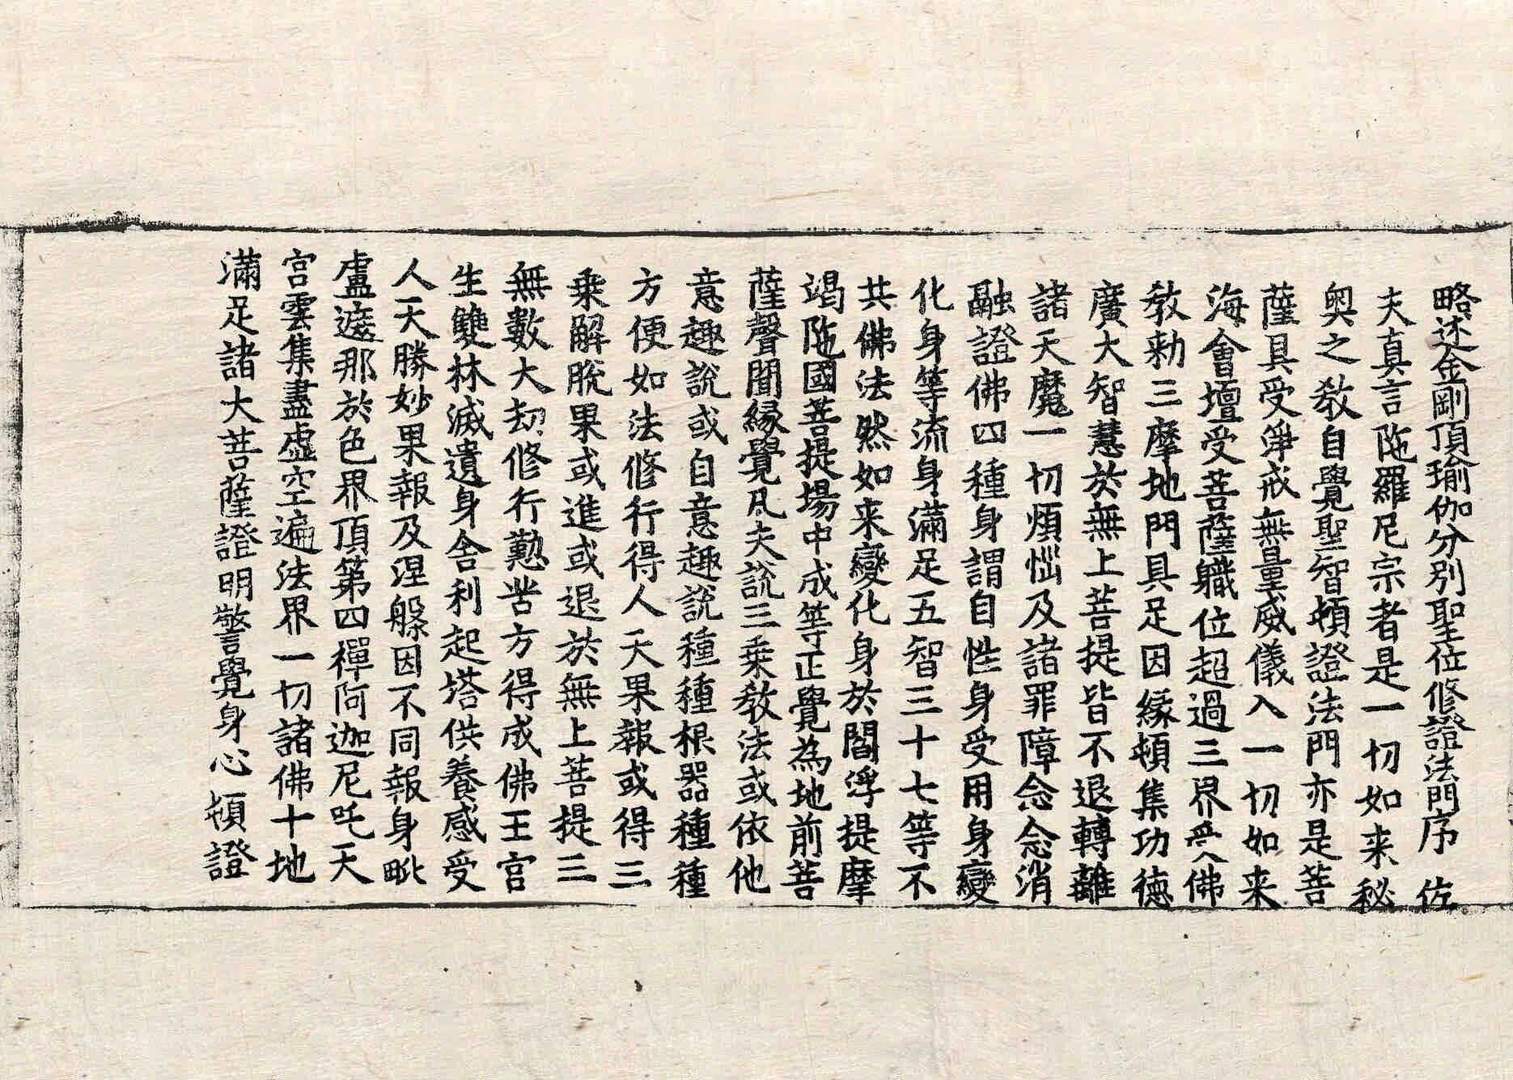 略述金剛頂瑜伽分別聖位修證法門序 佐
夫真言陁羅尼宗者是一切如来秘
奥之教自覺聖智頓證法門亦是菩
薩具受淨戒無量威儀入一切如来
海會壇受菩薩職位超過三界受佛
教勅三摩地門具足因縁頓集功德
廣大智慧於無上菩提皆不退轉離
諸天魔一切煩惱及諸罪障念念消
融證佛四種身謂自性身受用身變
化身等流身滿足五智三十七等不
共佛法然如来變化身於閻浮提摩
竭陁國菩提場中成等正覺為地前菩
薩聲聞縁覺凡夫説三乗教法或依他
意趣説或自意趣説種種根器種種
方便如法修行得人天果報或得三
乗解脱果或進或退於無上菩提三
無數大劫修行勤苦方得成佛王宫
生雙林滅遺身舍利起塔供養感受
人天勝妙果報及涅槃因不同報身毗
盧遮那於色界頂第四禪阿迦尼吒天
宫雲集盡虚空遍法界一切諸佛十地
滿足諸大菩薩證明警覺身心頓證